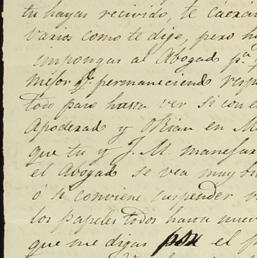 tu hayas recivido, te caeran
varios como te dije, pero h
impongas al Abogad pª
mejor permaneciendo resp
todo paro hasta ver si con e
Apoderado y Otian en M
que tu y J. M manefue
el Abogad se vea muy bi
ó si conviene suspender
los papeles todos hasta nuev
que me digas por el p